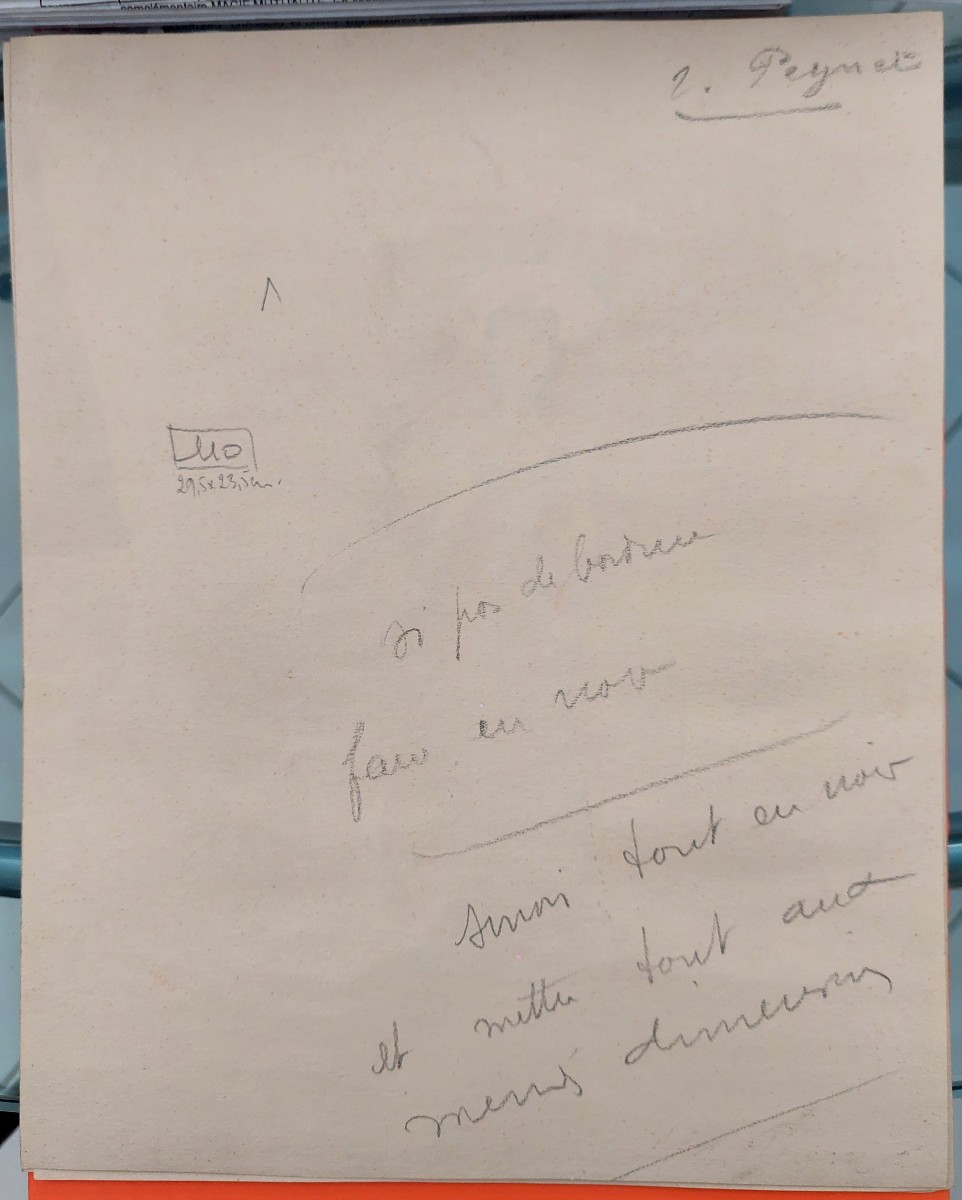 complémentaire MAGIE MUTUALITÉ
2. Peynet
110
29,5x23,5cm.
si pas de bordure
faire en noir
sinon tout en noir
et mettre tout aux
memes dimensions